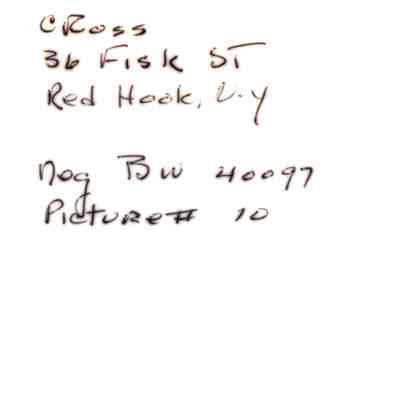 CRoss
36 Fisk ST
Red Hook, N.Y
Neg BW 40097
Picture# 10